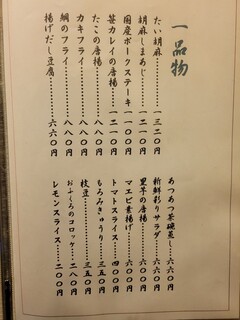 一品物
たい胡麻………一三二〇円
胡麻しまあじ………一二一〇円
国産ポークステーキ…一一〇〇円
笹カレイの唐揚………一二一〇円
たこの唐揚………八八〇円
カキフライ………八八〇円
鯛のフライ………八八〇円
揚げだし豆腐………六六〇円
あつあつ茶碗蒸し…六六〇円
新鮮彩りサラダ……六六〇円
里芋の唐揚………六六〇円
マエビ素揚げ………六六〇円
トマトスライス……四四〇円
もろみきゅうり……三五〇円
枝豆………三五〇円
おふくろのコロッケ…二八〇円
レモンスライス……二〇〇円